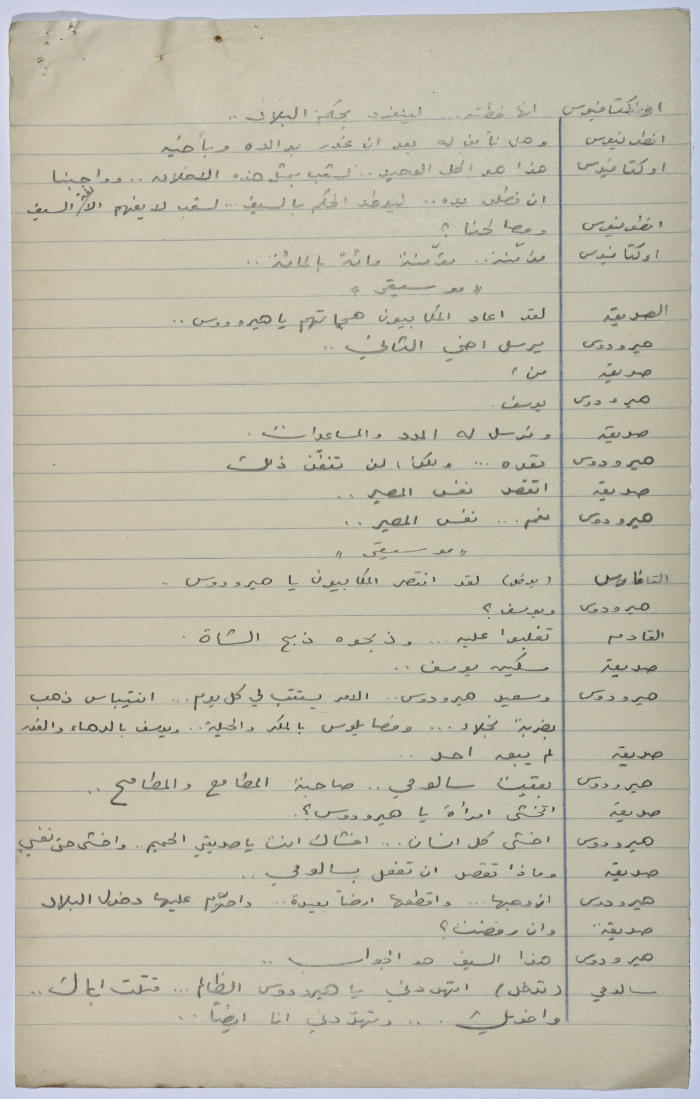 اوكتافيوس انها خطته... لينفرد بحكم البلاد..
انطونيوس وهل نأمن له بعد ان غدر بوالده وبأخيه
اوكتافيوس هذا هو الحل الوحيد.. لشعب بمثل هذه الاخلاق.. وواجبنا
ان نطلق يده.. ليوطد الحكم بالسيف.. لشعب لا يفهم الا لغة السيف
انطونيوس ومصالحنا؟
اوكتافيوس مؤمّنة.. مؤمّنة مائة بالمائة..
"موسيقى"
الصديق لقد اعاد المكابيون هجماتهم يا هيرودوس..
هيرودوس نرسل اخي الثاني..
صديق من؟
هيرودوس يوسف.
صديق ونرسل له المدد والمساعدات.
هيرودوس نعده... ولكن لن ننفّذ ذلك
صديق اتقصد نفس المصير..
هيرودوس نعم... نفس المصير..
"موسيقى"
القادم (يدخل) لقد انتصر المكابيون يا هيرودوس..
هيرودوس ويوسف؟
القادم تغلبوا عليه... وذبحوه ذبح الشاة.
صديق مسكين يوسف..
هيرودوس وسعيد هيرودوس.. الامر يستتب لي كل يوم... انتيباس ذهب
بضربة نجلاء... وفصايلوس بالمكر والحيلة.. ويوسف بالدهاء والغدر
صديق لم يبق احد..
هيرودوس بقيت سالومي.. صاحبة المطامع والمطامح..
صديق اتخشى امرأة يا هيرودوس؟.
هيرودوس اخشى كل انسان... اخشاك انت يا صديقي الحميم.. واخشى حتى نفسي
صديق وماذا تقصد ان تفعل بسالومي..
هيرودوس ازوجها... واقطعها ارضاً بعيدة... واحرّم عليها دخول البلاد
صديق وان رفضت؟
هيرودوس هذا السيف هو الجواب..
سالومي (تدخل) اتهددني يا هيرودوس الظالم... قتلت اباك..
واخويك... وتهددني انا ايضاً..